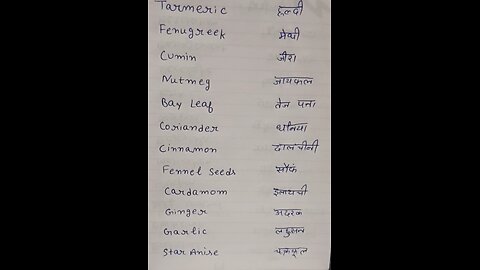 Tarmeric हल्दी
Fenugreek मेथी
Cumin जीरा
Nutmeg जायफल
Bay Leaf तेज पत्ता
Coriander धनिया
Cinnamon दालचीनी
Fennel Seeds सौंफ
Cardamom इलायची
Ginger अदरक
Garlic लहसुन
Star Anise चक्रफूल